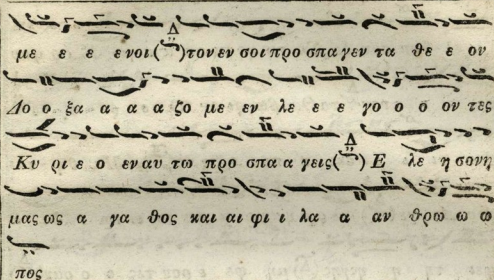 με ε ε ενοι (Δ) τον εν σοι προ σπα γεν τα θε ε ον
Δο ο ξα α α α ζο με εν λε ε ε γο ο ο ον τες
Κυ ρι ε ο εν αυ τω προ σπα α γεις (Δ) Ε λε η σον η
μας ως α γα θος και αι φι ι λα α αν θρω ω ω
πος